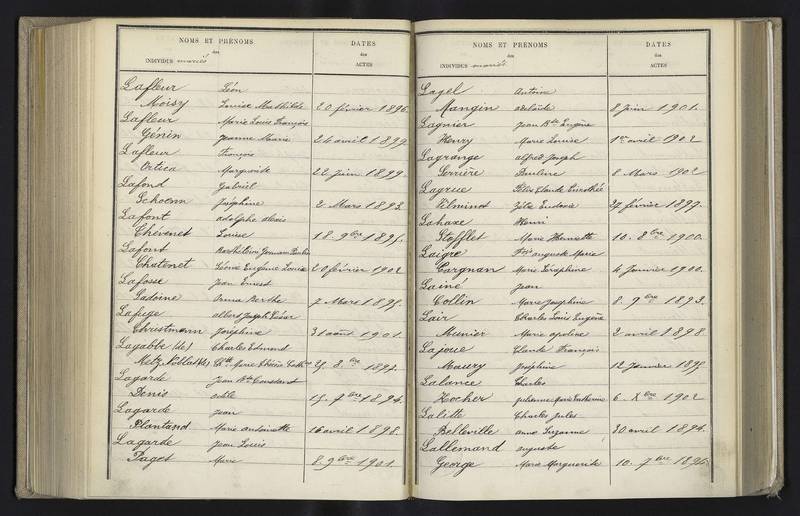 NOMS ET PRÉNOMS
des
INDIVIDUS mariés
DATES
des
ACTES
Lafleur Léon
Moisy Louise Mathilde 20 février 1896.
Lafleur Marie Louis François
Génin Jeanne Marie 24 avril 1899
Lafleur François
Ortica Marguerite 22 juin 1899.
Lafond Gabriel
Schoenn Joséphine 2 Mars 1893.
Lafont adolphe alexis
Thévenet Louise 18. 9bre 1895.
Lafont Barthélemy Germain
Chatenet Léonie Eugénie Louise 20 février 1902
Lafosse Jean Ernest
Gadoine Berthe 7 Mars 1895.
Lafuge albert Joseph César
Christmann Joséphine 31 août 1901.
Lagabbe (de) Charles Edmond
Metz Noblat (de) Marie Thérèse 8bre
Lagarde Jean Bte Constant
Denis adèle 15. 9bre 1894.
Lagarde Jean
Plantand Marie antoinette 16 avril 1898.
Lagarde Jean Louis
Paget Marie 8. 9bre 1901.
NOMS ET PRÉNOMS
des
INDIVIDUS mariés
DATES
des
ACTES
Lagel Antoine
Mangin adélaïde 8 juin 1901.
Lagnier Jean Bte Eugène
Henry Marie Louise 1er avril 1902
Lagrange alfred Joseph
Serrière Pauline 8 Mars 1902
Lagrue Félix Claude
Elminot Zélie 27 février 1897.
Lahaxe Henri
Stofflet Marie Henriette 10. 8bre 1900.
Laigre auguste Marie
Cargnan Marie Séraphine 4 Janvier 1900.
Lainé Jean
Collin Marie Joséphine 8. 9bre 1893.
Lair Charles Louis Eugène
Munier Marie apoline 2 avril 1898.
Lajoue Claude François
Maury Joséphine 12 Janvier 1895
Lalance Charles
Zocher Julienne Marie Catherine 6. Xbre 1902
Lalitte Charles Jules
Belleville anne Suzanne 30 avril 1894.
Lallemand auguste
George Marie Marguerite 10. 7bre